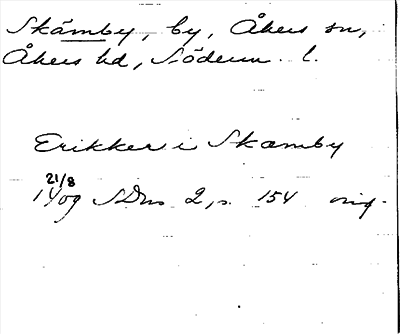 Skämby, by, Åkers sn,
Åkers hd, Söderm. l.
Erikker i Skamby
21/8
1409 SDns 2, s. 154 orig.